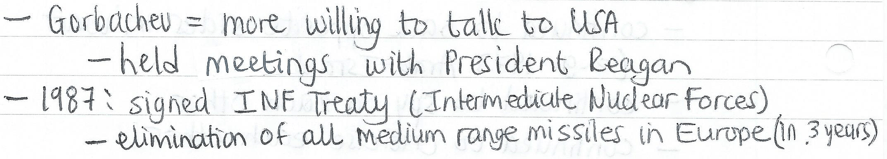 — Gorbachev = more willing to talk to USA
— held meetings with President Reagan
— 1987: signed INF Treaty (Intermediate Nuclear Forces)
— elimination of all medium range missiles in Europe (in 3 years)